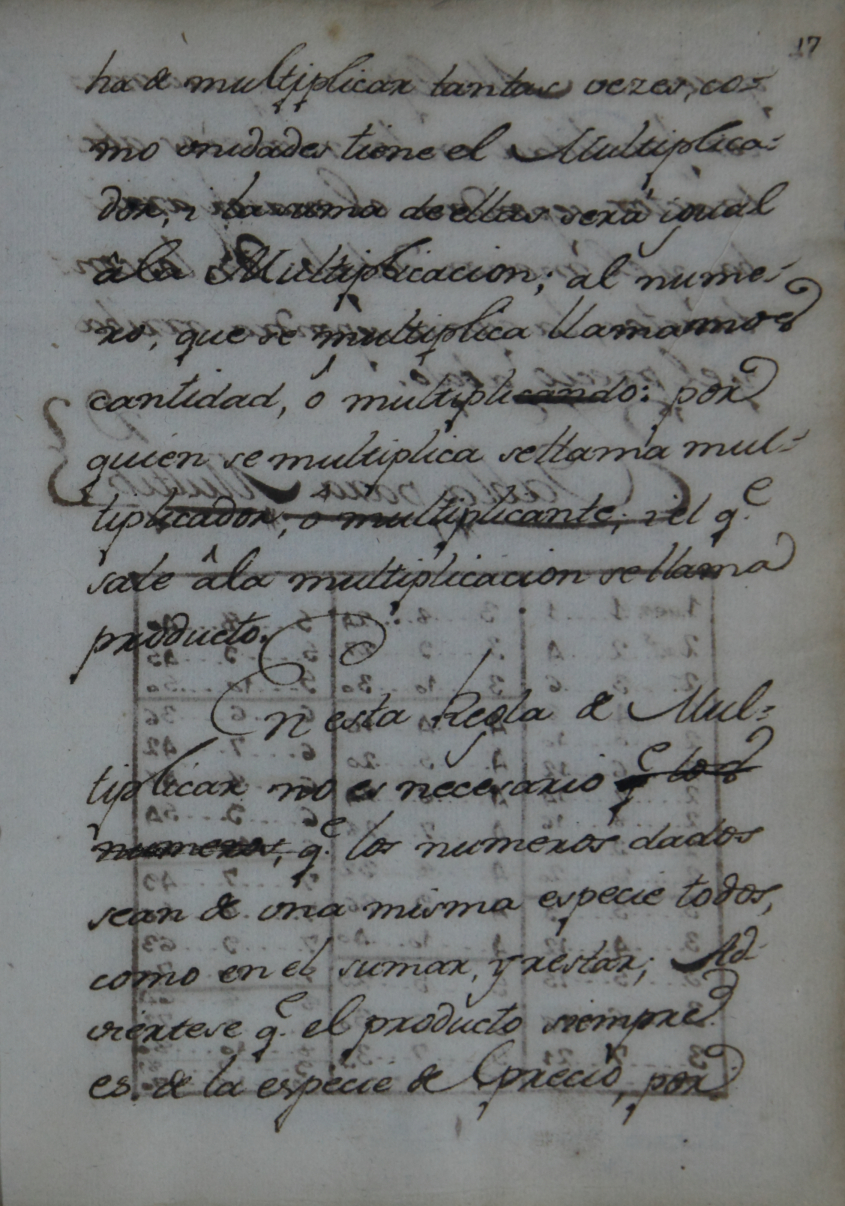 17
ha de multiplicar tantas vezes, co-
mo vnidades tiene el Multiplica-
dor, i la suma de ellas será igual
âla Multiplicacion; al nume-
ro, que se multiplica llamamos
cantidad, o multiplicando: por
quien se multiplica se llama mul-
tiplicador, o multiplicante, i el q.e
sale âla multiplicacion se llama
producto.
En esta Regla de Mul-
tiplicar no es necesario q.e los
numeros, q.e los numeros dados
sean de vna misma especie todos,
como en el sumar, y restar; Ad-
viertese q.e el producto siempre
es de la especie de l precio, por